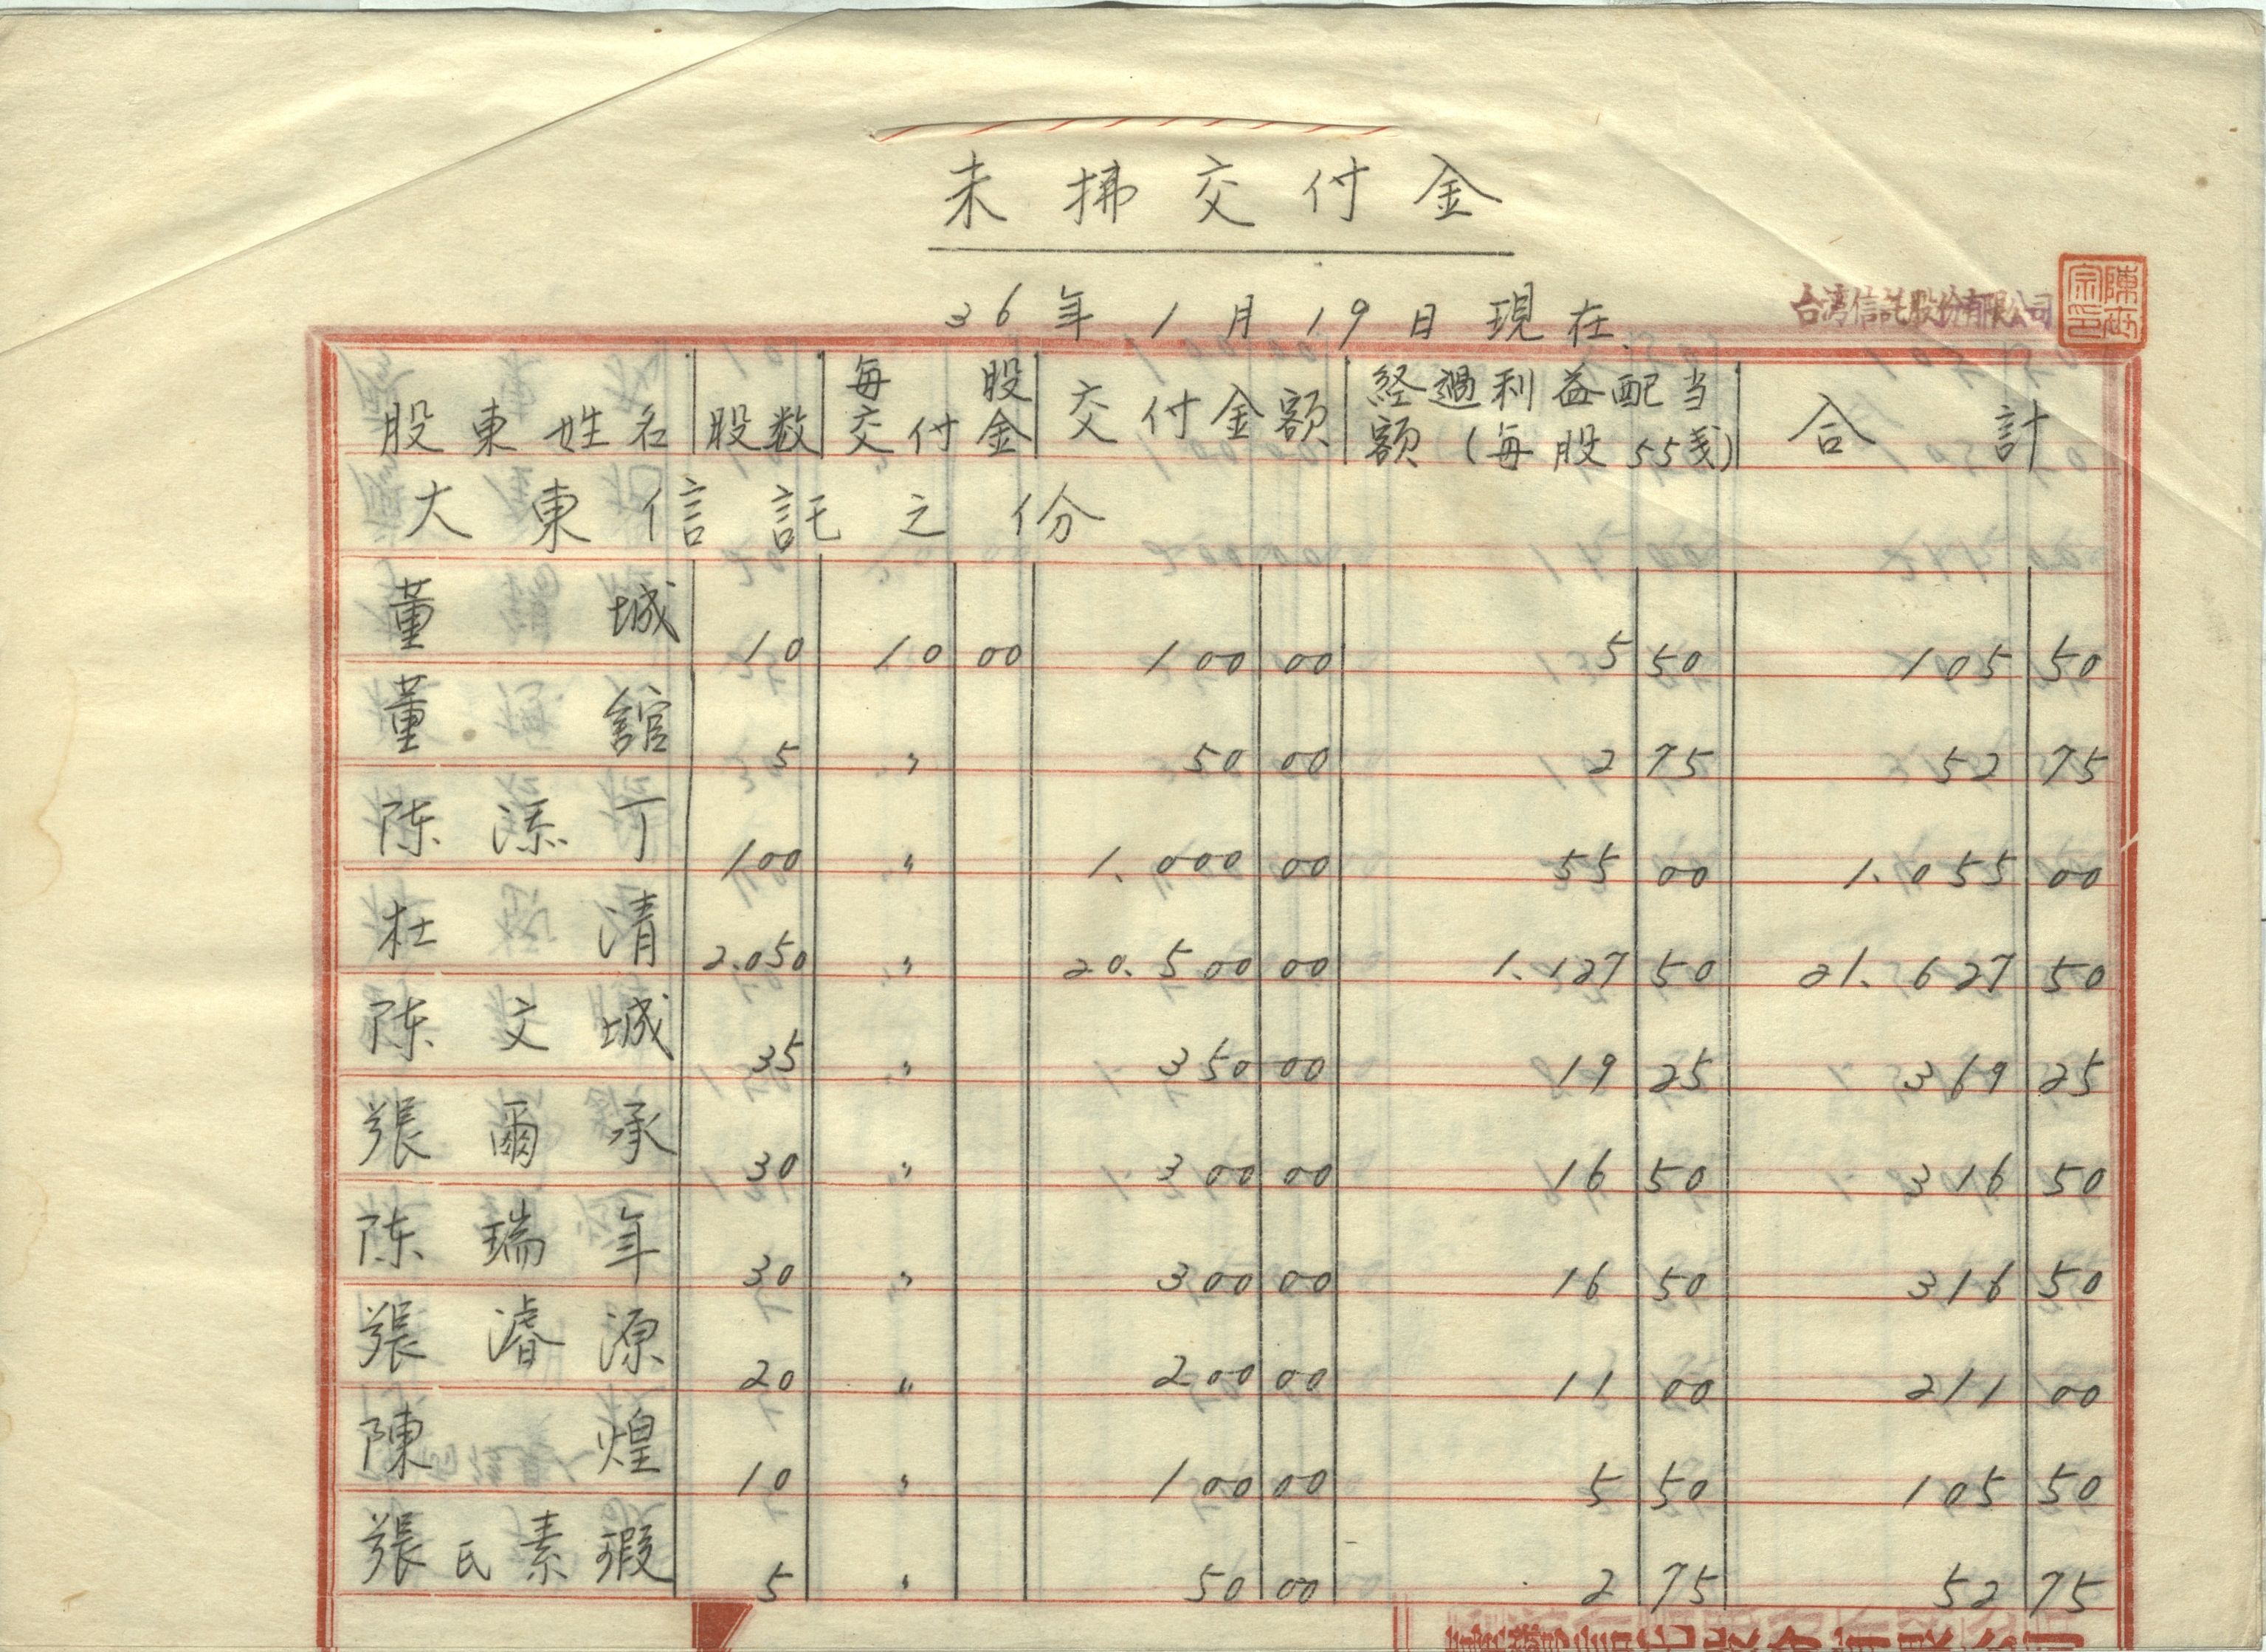 未拂交付金
36年1月19日現在
台湾信託股份有限公司
股東姓名 股数 每股交付金 交付金額 経過利益配当額(每股55戋) 合計
大東信託之份
董城 10 10 00 100 00 5 50 105 50
董舘 5 〃 50 00 2 75 52 75
陈添丁 100 〃 1.000 00 55 00 1.055 00
杜清 2.050 〃 20.500 00 1.127 50 21.627 50
陈文城 35 〃 350 00 19 25 369 25
張爾承 30 〃 300 00 16 50 316 50
陈瑞年 30 〃 300 00 16 50 316 50
張濬源 20 〃 200 00 11 00 211 00
陳煌 10 〃 100 00 5 50 105 50
張氏素瑕 5 〃 50 00 2 75 52 75